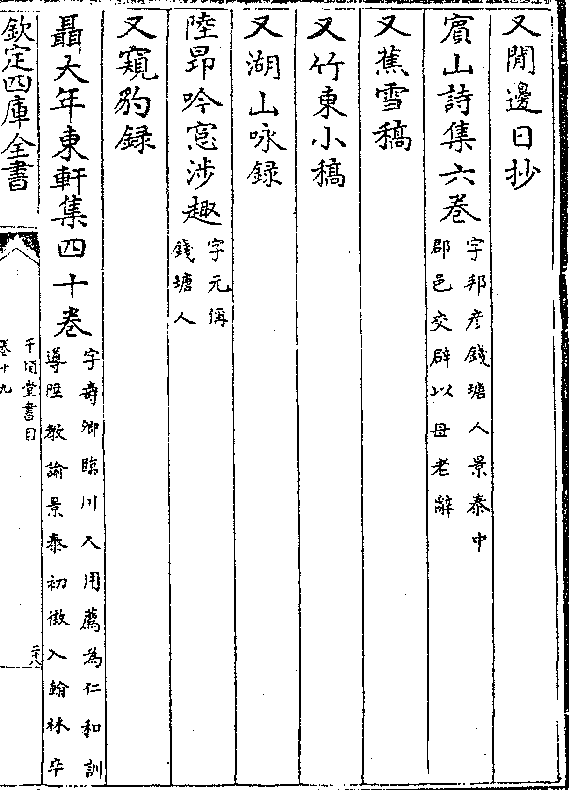 又閒邊日抄
賔山詩集六卷
字邦彦錢塘人景泰中
郡邑交辟以母老辭
又蕉雪稿
又竹東小稿
又湖山咏録
陸昻吟窓涉趣
字元偁
錢塘人
又窺豹録
聶大年東軒集四十卷
字壽卿臨川人用薦為仁和訓
導陞教諭景泰初徴入翰林卒
欽定四庫全書
千頃堂書目
卷十九